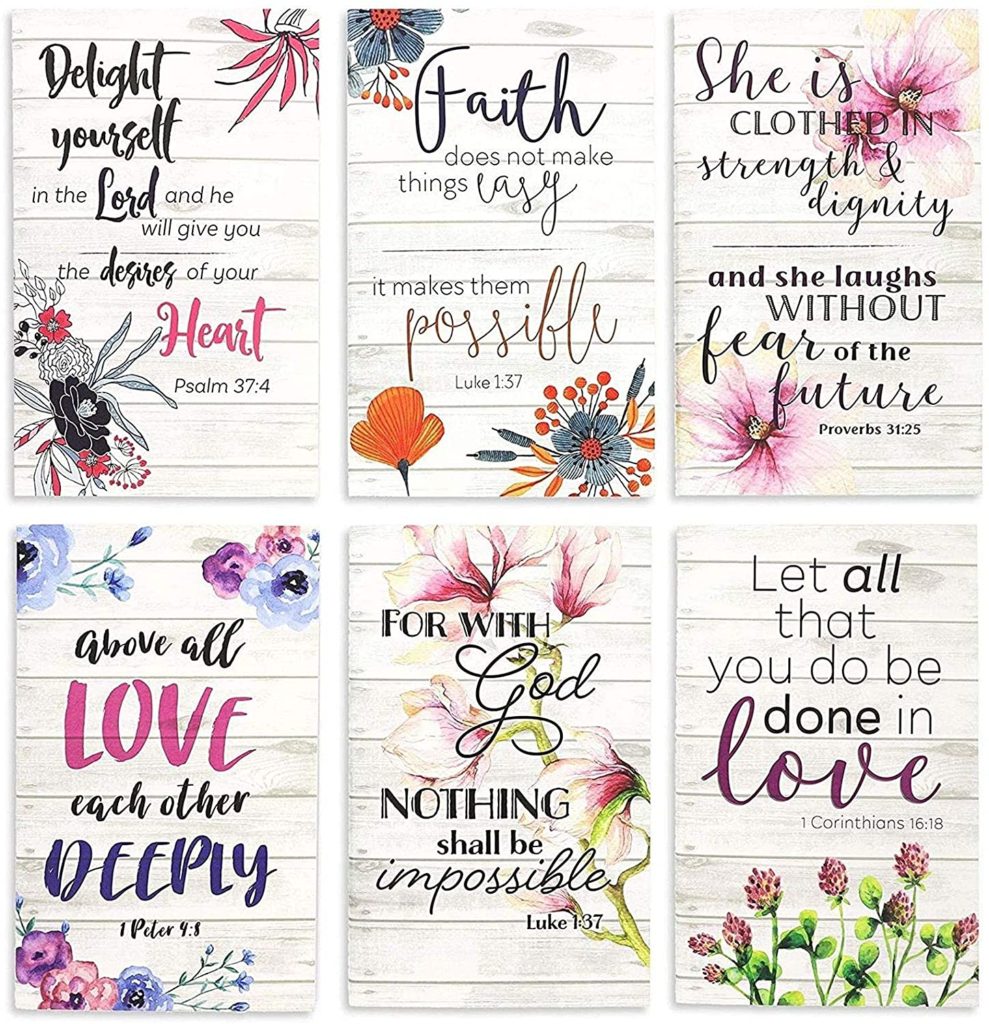 Delight
yourself
in the Lord and he
will give you
the desires of your
Heart
Psalm 37:4
Faith
does not make
things easy
it makes them
possible
Luke 1:37
She is
CLOTHED IN
strength &
dignity
and she laughs
WITHOUT
fear of the
future
Proverbs 31:25
Above all
LOVE
each other
DEEPLY
1 Peter 4:8
FOR WITH
God
NOTHING
shall be
impossible
Luke 1:37
Let all
that
you do be
done in
love
1 Corinthians 16:18